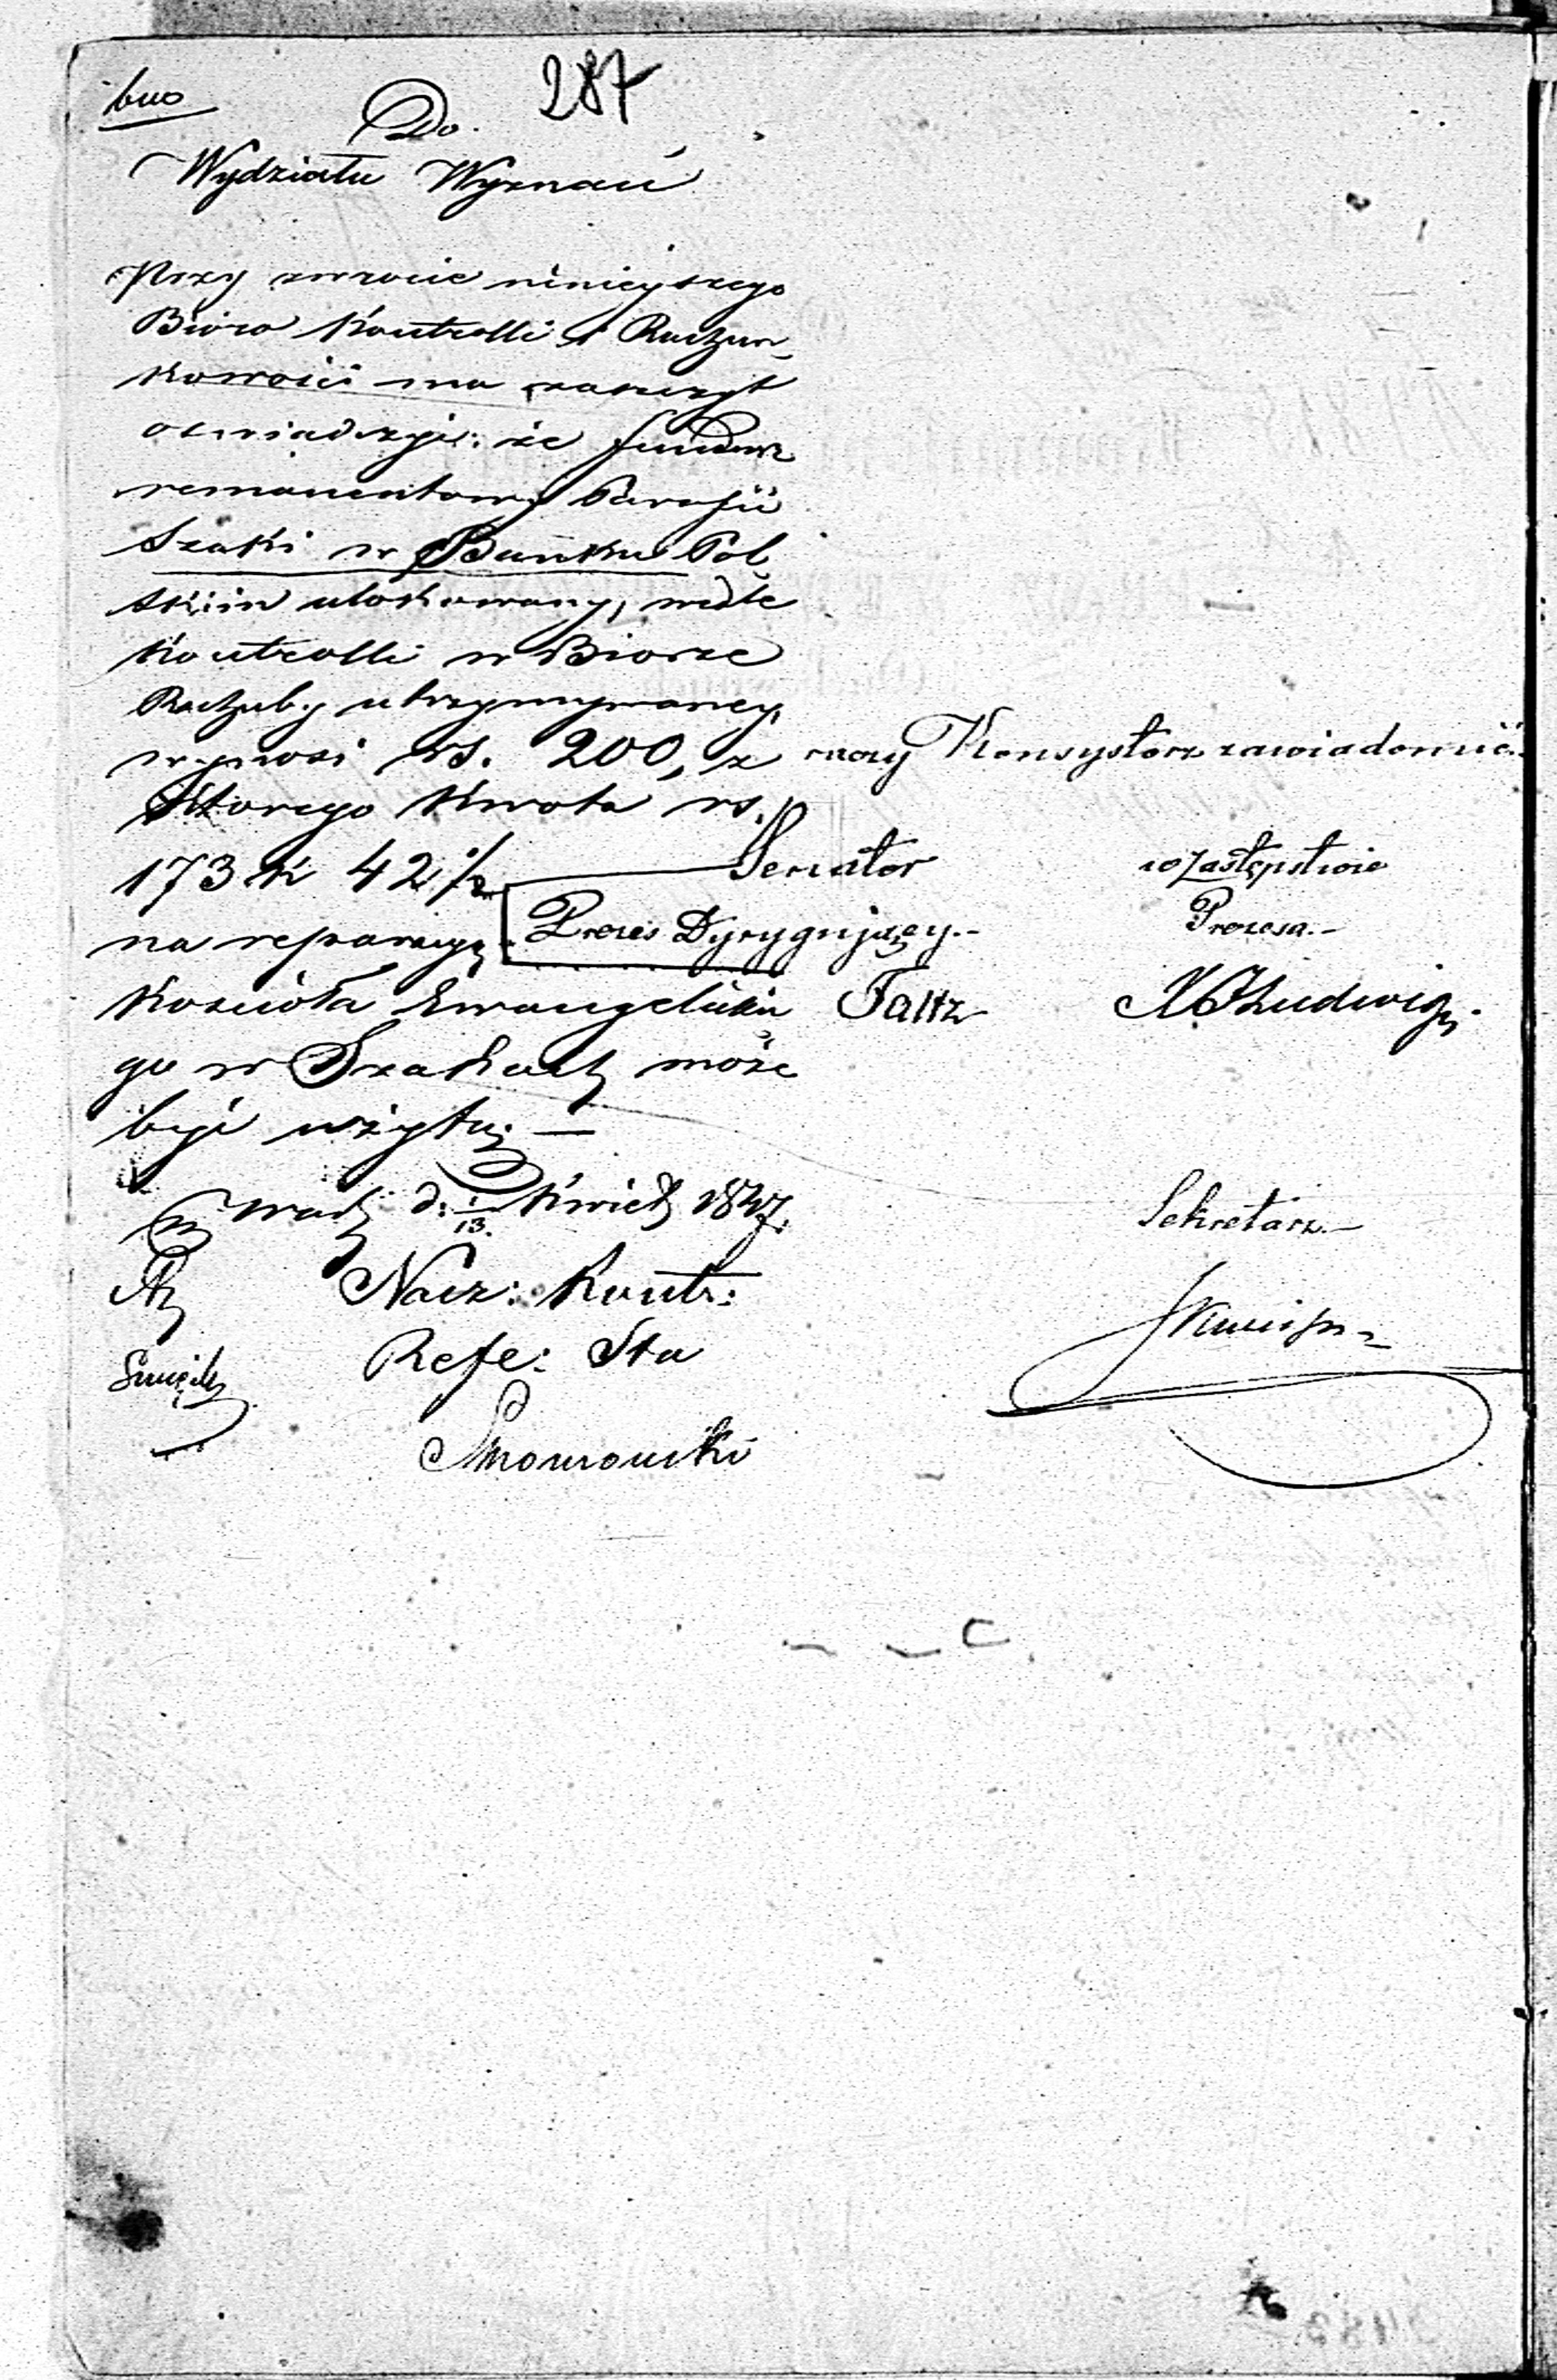 287
Do
Wydziału Wyznań
Przy zwrocie niniejszego
Bióro Kontrolli i Rachun-
kowości ma zaszczyt
oświadczyć: że fundusz
remanentowy Parafii
Szaki w Banku Pol
skim ulokowany, wedle
Kontrolli w Biorze
Rachuby utrzymywaney,
wynosi rs. 200, z
którego kwota rs.
173 k 42 1/2
na reparacyę
Kościoła Ewangelickie
go w Szakach może
być użytą. —
w Warsz d. 1/13 Kwiet 1847.
Nacz: Kontr:
Refe: Sta
raczy Konsystorz zawiadomić.
Senator
Prezes Dyrygujący.-
Faltz
w Zastępstwie
Prezesa.-
Ludwig
Sekretarz.-